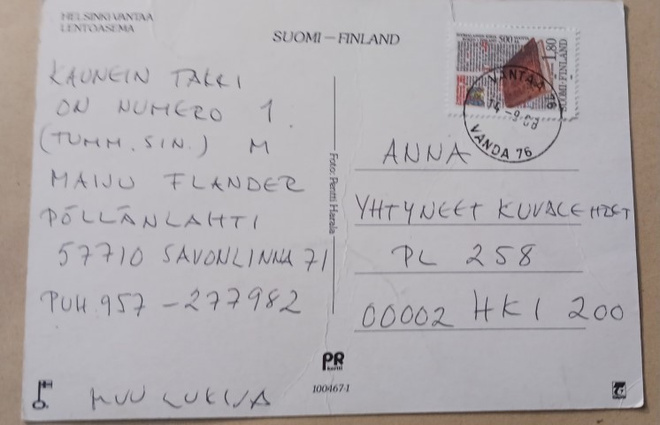 HELSINKI-VANTAA
LENTOASEMA
SUOMI – FINLAND
KAUNEIN TAKKI
ON NUMERO 1.
(TUMM. SIN.) M
MAIJU FLANDER
PÖLLÄNLAHTI
57710 SAVONLINNA 71
PUH. 957 - 277982
MUU LUKIJA
Foto: Pentti Harala
PR
kortti
100467-1
500
1,80
SUOMI-FINLAND
VANTAA
14 -9 88
VANDA 76
ANNA
YHTYNEET KUVALEHDET
PL 258
00002 HKI 200